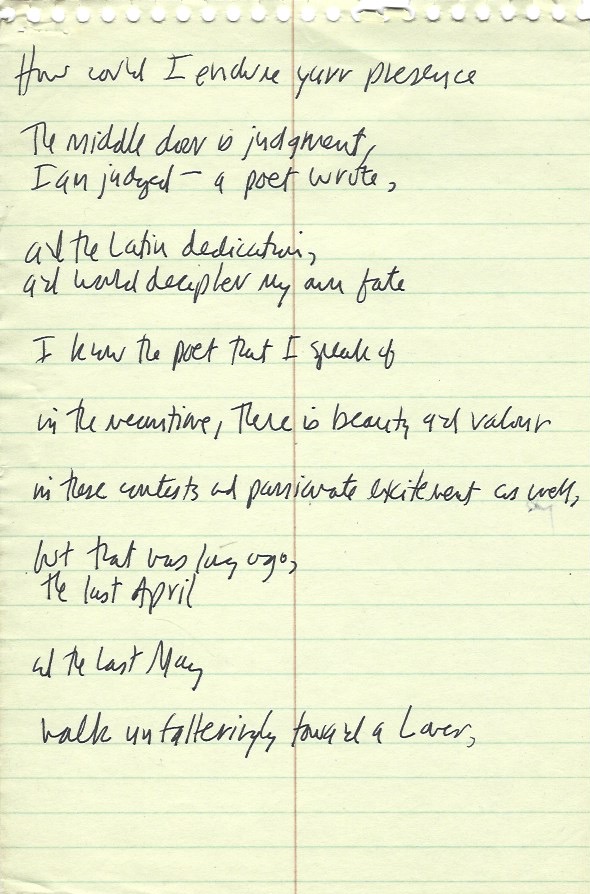 How could I endure your presence
The middle door is judgment,
I am judged — a poet wrote,
and the Latin dedication,
and would decipher my own fate
I know the poet that I speak of
in the meantime, There is beauty and valour
in these contests and passionate excitement as well,
but that was long ago,
the last April
and the last May
walk unfalteringly toward a Lover,